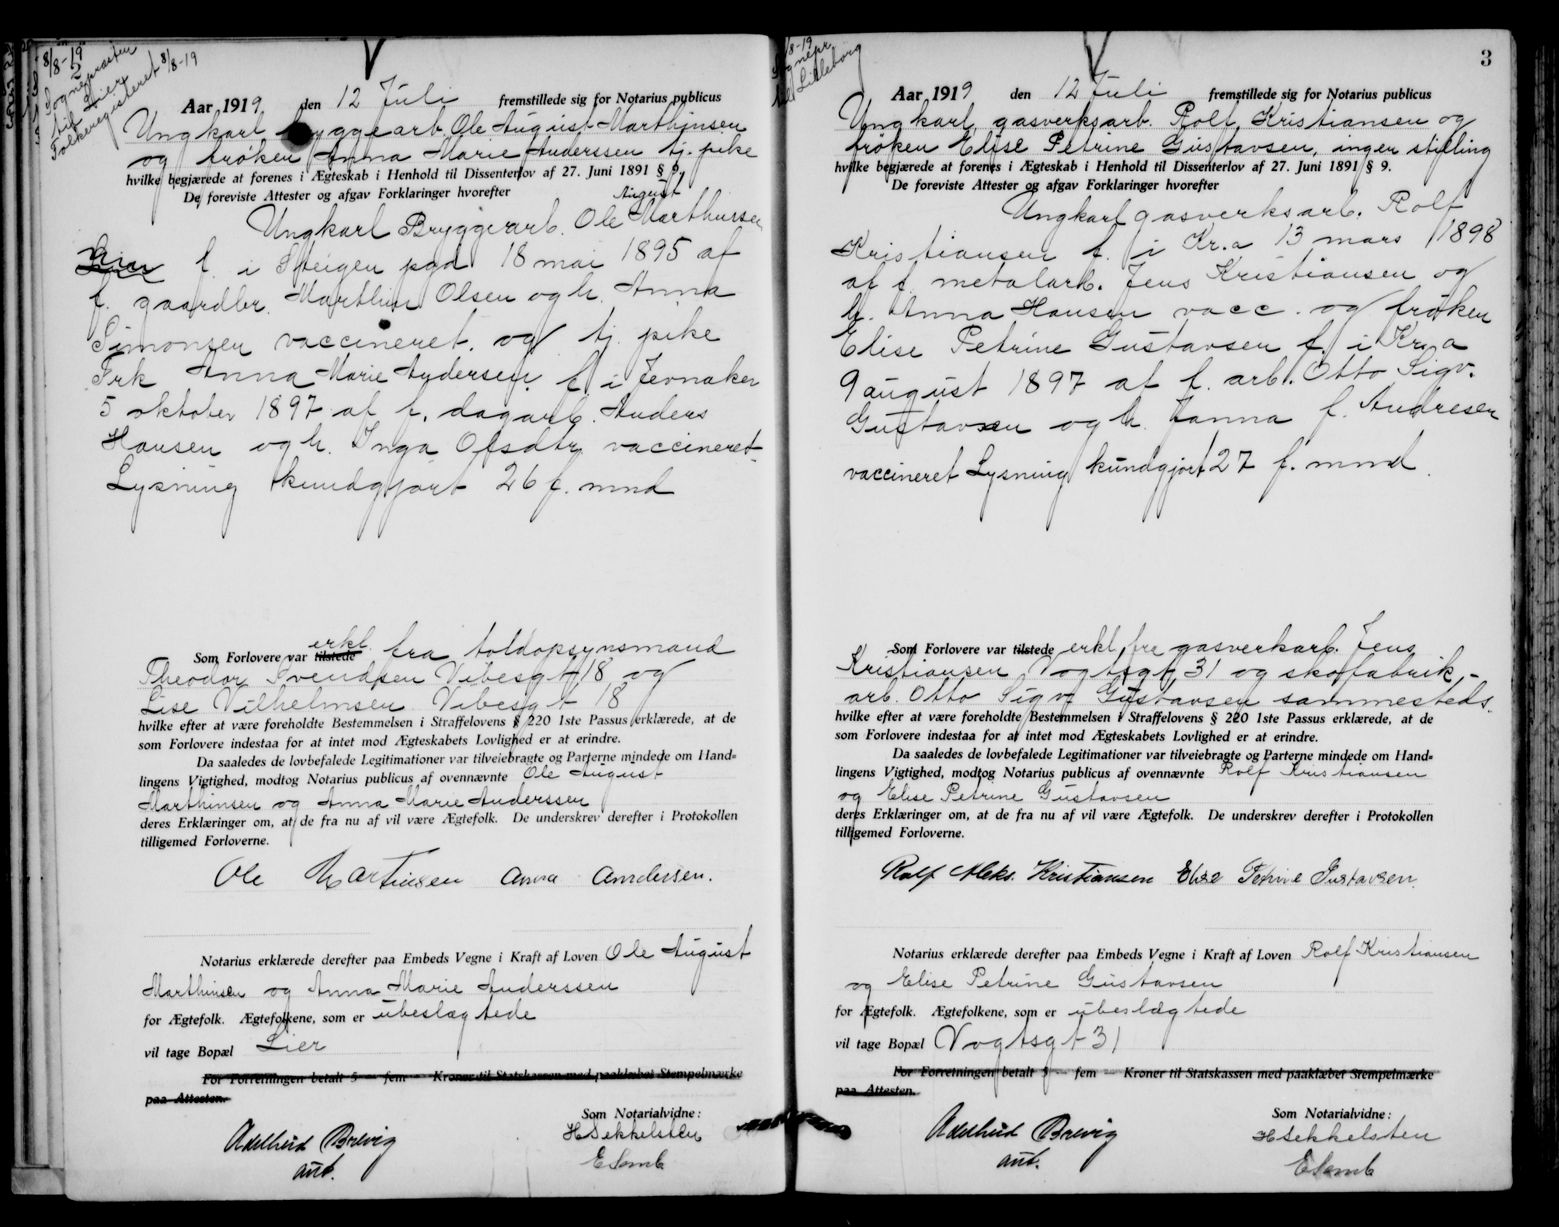 8/8-19
2
Sognepræsten
til Lier
Folkeregisteret 8/8-19
Aar 1919. den 12 Juli fremstillede sig for Notarius publicus
Ungkarl bryggearb. Ole August Marthinsen
og frøken Anna Marie Anderssen tj. pike
hvilke begjærede at forenes i Ægteskab i Henhold til Dissenterlov af 27. Juni 1891 § 9.
De foreviste Attester og afgav Forklaringer hvorefter
August
Ungkarl Bryggerarb. Ole Marthinsen
Lier f. i Steigen pgd 18 mai 1895 af
f. gaardbr. Marthin Olsen og h. Anna
Simonsen vaccineret. og tj. pike
Frk Anna Marie Andersen f. i Jevnaker
5 oktober 1897 af f. dagarb. Anders
Hansen og h. Inga Olsdtr vaccineret
Lysning kundgjort 26 f. mnd
erkl.
Som Forlovere var tilstede fra toldopsynsmand
Theodor Svendsen Vibesgt 18 og
Lise Vilhelmsen Vibesgt 18
hvilke efter at være foreholdte Bestemmelsen i Straffelovens § 220 1ste Passus erklærede, at de
som Forlovere indestaa for at intet mod Ægteskabets Lovlighed er at erindre.
Da saaledes de lovbefalede Legitimationer var tilveiebragte og Parterne mindede om Hand=
lingens Vigtighed, modtog Notarius publicus af ovennævnte Ole August
Marthinsen og Anna Marie Anderssen
deres Erklæringer om, at de fra nu af vil være Ægtefolk. De underskrev derefter i Protokollen
tilligemed Forloverne.
Ole Martinsen Anna Andersen.
Notarius erklærede derefter paa Embeds Vegne i Kraft af Loven Ole August
Marthinsen og Anna Marie Anderssen
for Ægtefolk. Ægtefolkene, som er ubeslægtede
vil tage Bopæl Lier
For Forretningen betalt 5 — fem — Kroner til Statskassen med paaklæbet Stempelmærke
paa Attesten.
Som Notarialvidne:
Adelheid Brevig H Sekkelsten
aut. E Semb
3
8-19
til Lilleborg
Aar 1919 den 12 Juli fremstillede sig for Notarius publicus
Ungkarl, gasverksarb. Rolf Kristiansen og
frøken Elise Petrine Gustavsen, ingen stilling
hvilke begjærede at forenes i Ægteskab i Henhold til Dissenterlov af 27. Juni 1891 § 9.
De foreviste Attester og afgav Forklaringer hvorefter
Ungkarl gasverksarb. Rolf
Kristiansen f. i Kr.a 13 mars 1898
af f. metalarb. Jens Kristiansen og
h. Anna Hansen vacc. og frøken
Elise Petrine Gustavsen f. i Kr.a
9 august 1897 af f. arb. Otto Sigv.
Gustavsen og h. Janna f. Andresen
vaccineret Lysning kundgjort 27 f. mnd.
Som Forlovere var tilstede erkl. fra gasverkarb. Jens
Kristiansen Vogtsgt 31 og skofabrik-
arb. Otto Sigv. Gustavsen sammesteds.
hvilke efter at være foreholdte Bestemmelsen i Straffelovens § 220 1ste Passus erklærede, at de
som Forlovere indestaa for at intet mod Ægteskabets Lovlighed er at erindre.
Da saaledes de lovbefalede Legitimationer var tilveiebragte og Parterne mindede om Hand=
lingens Vigtighed, modtog Notarius publicus af ovennævnte Rolf Kristiansen
og Elise Petrine Gustavsen
deres Erklæringer om, at de fra nu af vil være Ægtefolk. De underskrev derefter i Protokollen
tilligemed Forloverne.
Rolf Aleks. Kristiansen Elise Petrine Gustavsen.
Notarius erklærede derefter paa Embeds Vegne i Kraft af Loven Rolf Kristiansen
og Elise Petrine Gustavsen
for Ægtefolk. Ægtefolkene, som er ubeslægtede
vil tage Bopæl Vogtsgt 31
For Forretningen betalt 5 — fem — Kroner til Statskassen med paaklæbet Stempelmærke
paa Attesten.
Som Notarialvidne:
Adelheid Brevig H Sekkelsten
aut. E Semb